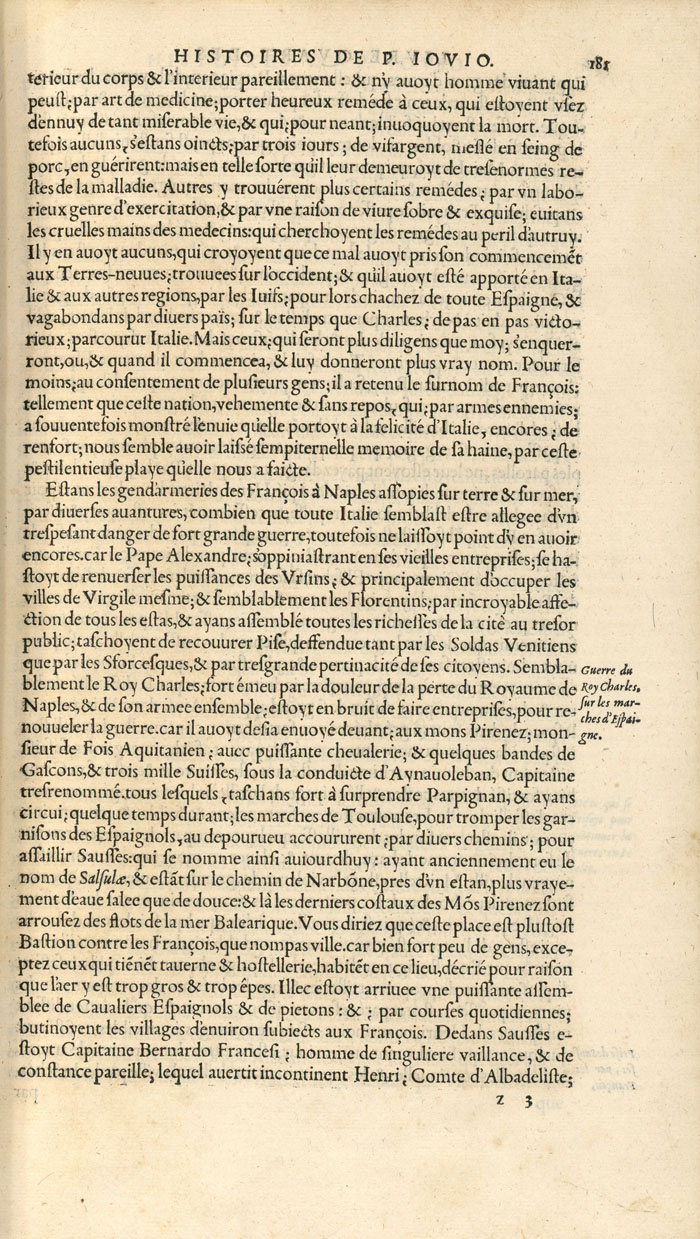 HISTOIRES DE P. IOVIO. 181
terieur du corps & l'interieur pareillement : & n'y auoyt homme viuant qui
peust;par art de medicine;porter heureux reméde à ceux, qui estoyent vsez
d'ennuy de tant miserable vie,& qui;pour neant;inuoquoyent la mort. Tou-
tefois aucuns,s'estans oincts;par trois iours ; de vifargent, meslé en seing de
porc,en guérirent:mais en telle sorte qu'il leur demeuroyt de tresenormes re-
stes de la malladie. Autres y trouuérent plus certains remédes; par vn labo-
rieux genre d'exercitation,& par vne raison de viure sobre & exquise; euitans
les cruelles mains des medecins:qui cherchoyent les remédes au peril d'autruy.
Il y en auoyt aucuns,qui croyoyent que ce mal auoyt pris son commencemēt
aux Terres-neuues;trouuees sur l'occident;& qu'il auoyt esté apporté en Ita-
lie & aux autres regions,par les Iuifs;pour lors chachez de toute Espaigne, &
vagabondans par diuers païs; sur le temps que Charles; de pas en pas victo-
rieux;parcourut Italie.Mais ceux;qui seront plus diligens que moy; s'enquer-
ront,ou,& quand il commencea, & luy donneront plus vray nom. Pour le
moins;au consentement de plusieurs gens;il a retenu le surnom de François:
tellement que ceste nation,vehemente & sans repos, qui;par armes ennemies;
a souuentefois monstré l'enuie qu'elle portoyt à la felicité d'Italie, encores ; de
renfort;nous semble auoir laissé sempiternelle memoire de sa haine, par ceste
pestilentieuse playe qu'elle nous a faicte.
Estans les gend'armeries des François à Naples assopies sur terre & sur mer,
par diuerses auantures, combien que toute Italie semblast estre allegee d'vn
trespesant danger de fort grande guerre,toutefois ne laissoyt point d'y en auoir
encores.car le Pape Alexandre;s'oppiniastrant en ses vieilles entreprises;se ha-
stoyt de renuerser les puissances des Vrsins; & principalement d'occuper les
villes de Virgile mesme;& semblablement les Florentins;par incroyable affe-
ction de tous les estas,& ayans assemblé toutes les richesses de la cité au tresor
public;taschoyent de recouurer Pise,deffendue tant par les Soldas Venitiens
que par les Sforcesques,& par tresgrande pertinacité de ses citoyens. Sembla-
blement le Roy Charles;fort émeu par la douleur de la perte du Royaume de
Naples,& de son armee ensemble;estoyt en bruit de faire entreprises,pour re-
nouueler la guerre.car il auoyt desia enuoyé deuant;aux mons Pirenez;mon-
sieur de Fois Aquitanien ; auec puissante cheualerie; & quelques bandes de
Gascons,& trois mille Suisses, sous la conduicte d'Aynauoleban, Capitaine
tresrenommé.tous lesquels,taschans fort à surprendre Parpignan, & ayans
circui;quelque temps durant;les marches de Toulouse,pour tromper les gar-
nisons des Espaignols,au depourueu accoururent ;par diuers chemins ; pour
assaillir Sausses:qui se nomme ainsi auiourdhuy : ayant anciennement eu le
nom de Salsulæ, & estāt sur le chemin de Narbōne,pres d'vn estan,plus vraye-
ment d'eaue salee que de douce:& là les derniers costaux des Mōs Pirenez sont
arrousez des flots de la mer Balearique.Vous diriez que ceste place est plustost
Bastion contre les François,que nompas ville.car bien fort peu de gens,exce-
ptez ceux qui tiēnēt tauerne & hostellerie,habitēt en ce lieu,décrié pour raison
que l'aer y est trop gros & trop épes. Illec estoyt arriuee vne puissante assem-
blee de Caualiers Espaignols & de pietons : & ; par courses quotidiennes;
butinoyent les villages d'enuiron subiects aux François. Dedans Sausses e-
stoyt Capitaine Bernardo Francesi ; homme de singuliere vaillance, & de
constance pareille; lequel auertit incontinent Henri; Comte d'Albadeliste;
z 3
Guerre du
Roy Charles,
sur les mar-
ches d'Espai-
gne.